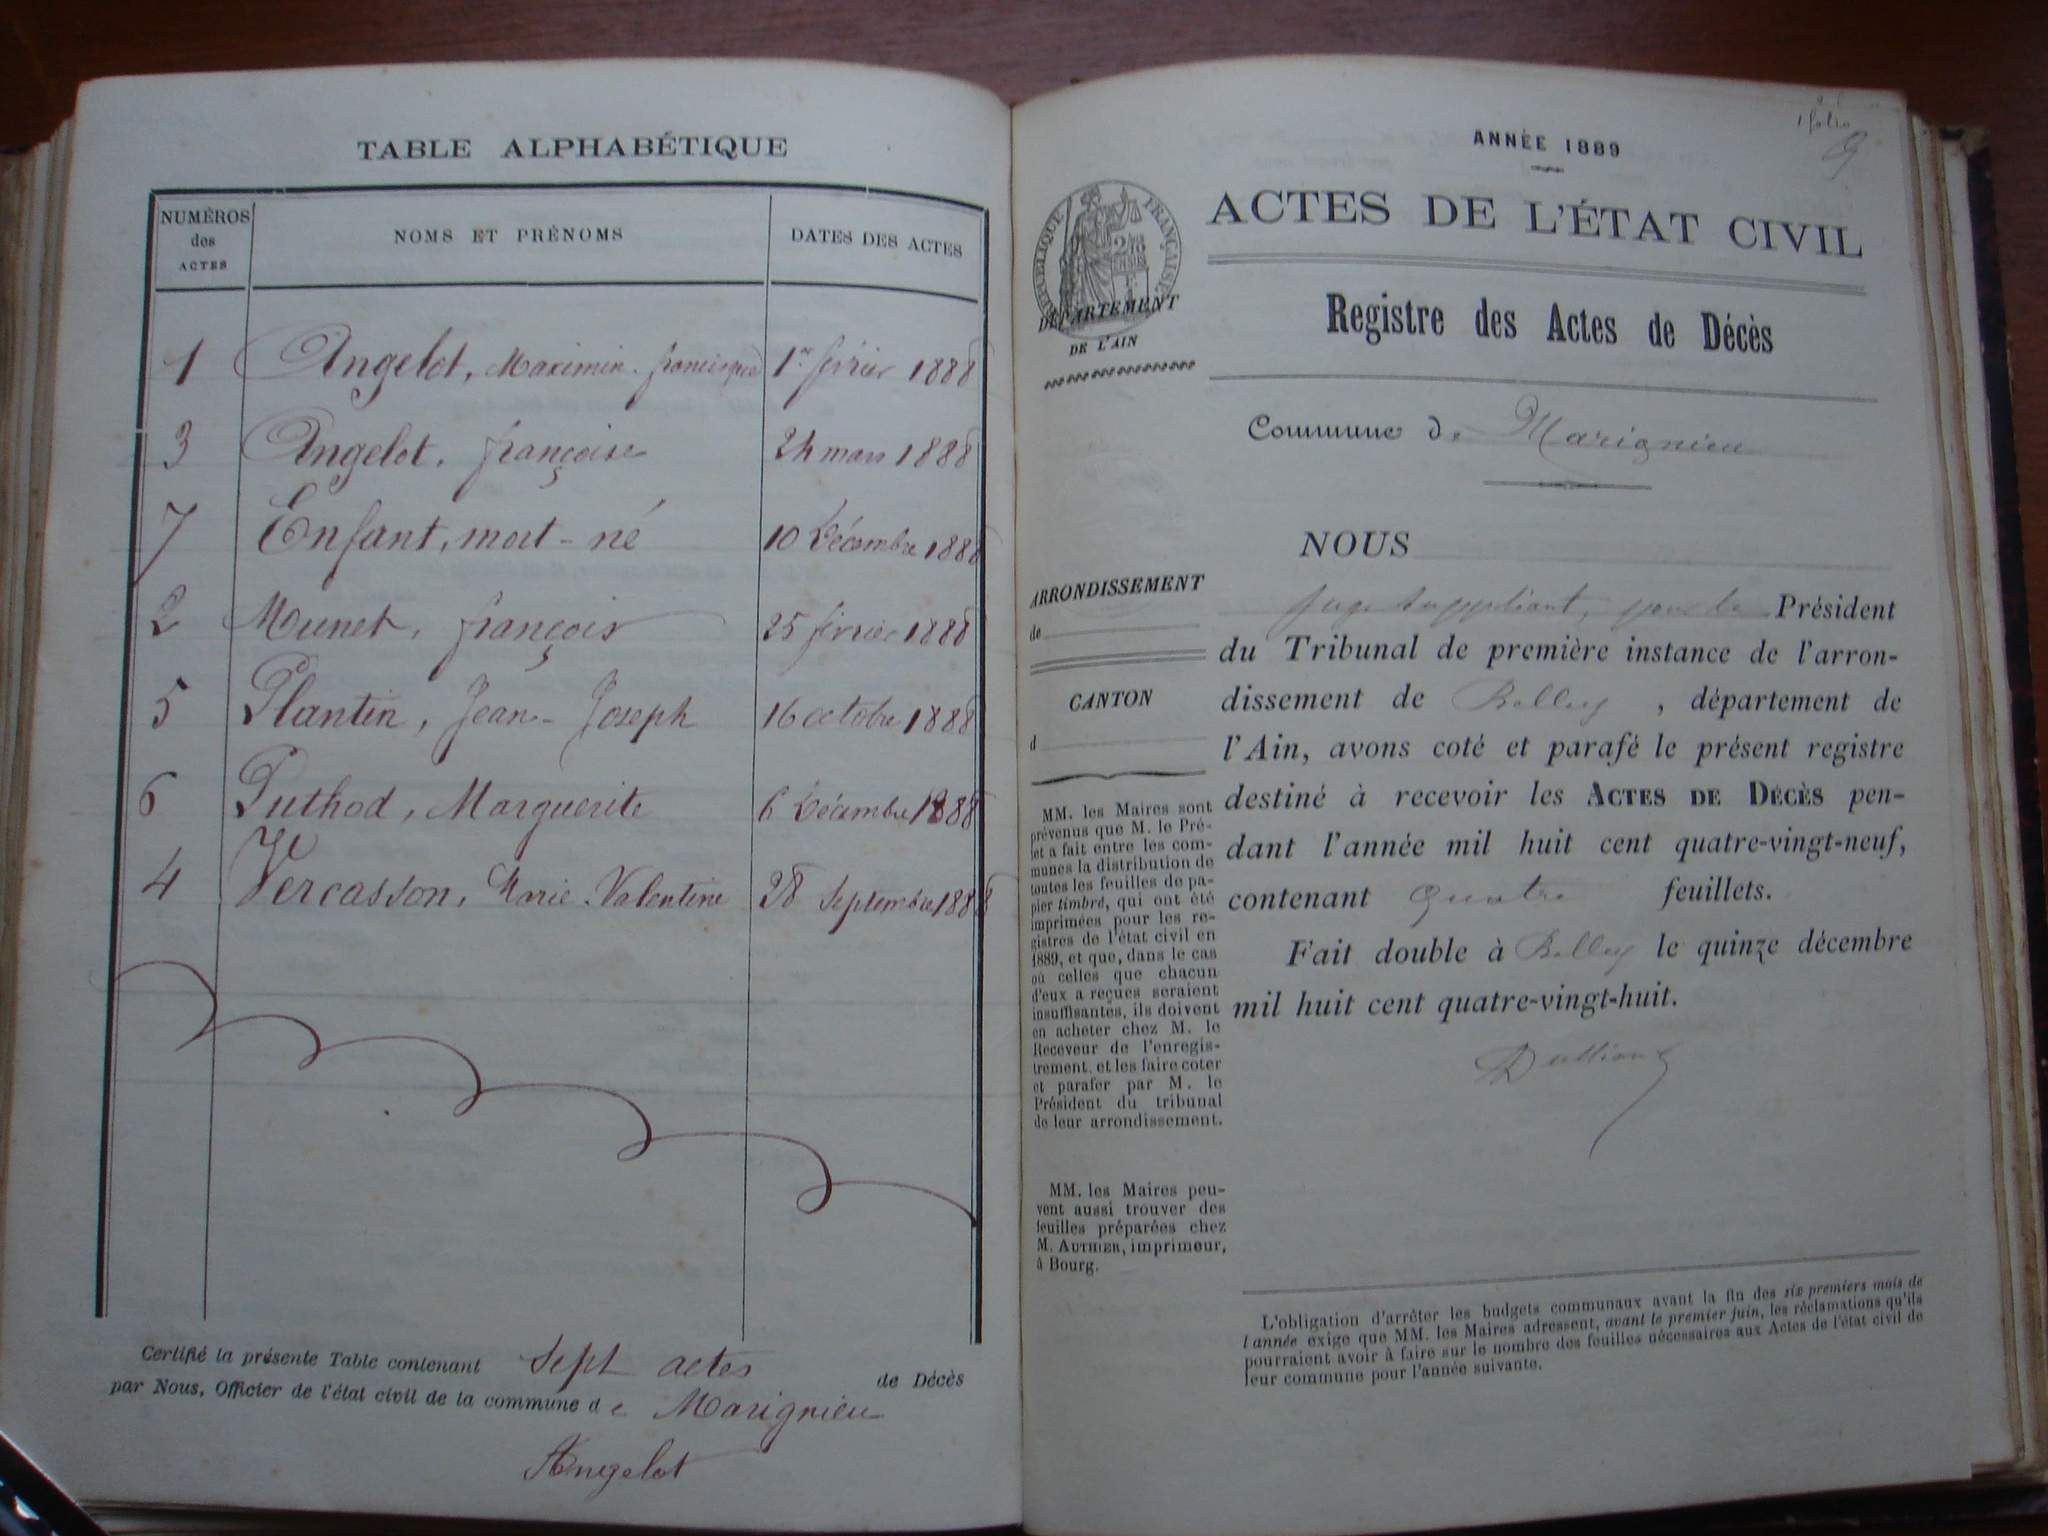 TABLE ALPHABÉTIQUE
NUMÉROS des ACTES NOMS ET PRÉNOMS DATES DES ACTES
1 Angelot, Maximin francisque 1er février 1888
3 Angelot, françoise 24 mars 1888
7 Enfant, mort-né 10 Décembre 1888
2 Munet, françois 25 février 1888
5 Plantin, Jean-Joseph 16 octobre 1888
6 Puthod, Marguerite 6 Décembre 1888
4 Vercasson, Marie-Valentine 28 Septembre 1888
Certifié la présente Table contenant Sept actes de Décès
par Nous, Officier de l'état civil de la commune de Marignieu
Angelot
1 folio
ANNÉE 1889
ACTES DE L'ÉTAT CIVIL
RÉPUBLIQUE FRANÇAISE
DÉPARTEMENT
DE L'AIN
Registre des Actes de Décès
Commune de Marignieu
NOUS
Juge suppléant, pour le Président
du Tribunal de première instance de l'arron-
dissement de Belley, département de
l'Ain, avons coté et parafé le présent registre
destiné à recevoir les ACTES DE DÉCÈS pen-
dant l'année mil huit cent quatre-vingt-neuf,
contenant quatre feuillets.
Fait double à Belley le quinze décembre
mil huit cent quatre-vingt-huit.
ARRONDISSEMENT
de
CANTON
d
MM. les Maires sont
prévenus que M. le Pré-
fet a fait entre les com-
munes la distribution de
toutes les feuilles de pa-
pier timbré, qui ont été
imprimées pour les re-
gistres de l'état civil en
1889, et que, dans le cas
où celles que chacun
d'eux a reçues seraient
insuffisantes, ils doivent
en acheter chez M. le
Receveur de l'enregis-
trement, et les faire coter
et parafer par M. le
Président du tribunal
de leur arrondissement.
MM. les Maires peu-
vent aussi trouver des
feuilles préparées chez
M. AUTHIER, imprimeur,
à Bourg.
L'obligation d'arrêter les budgets communaux avant la fin des six premiers mois de
l'année exige que MM. les Maires adressent, avant le premier juin, les réclamations qu'ils
pourraient avoir à faire sur le nombre des feuilles nécessaires aux Actes de l'état civil de
leur commune pour l'année suivante.